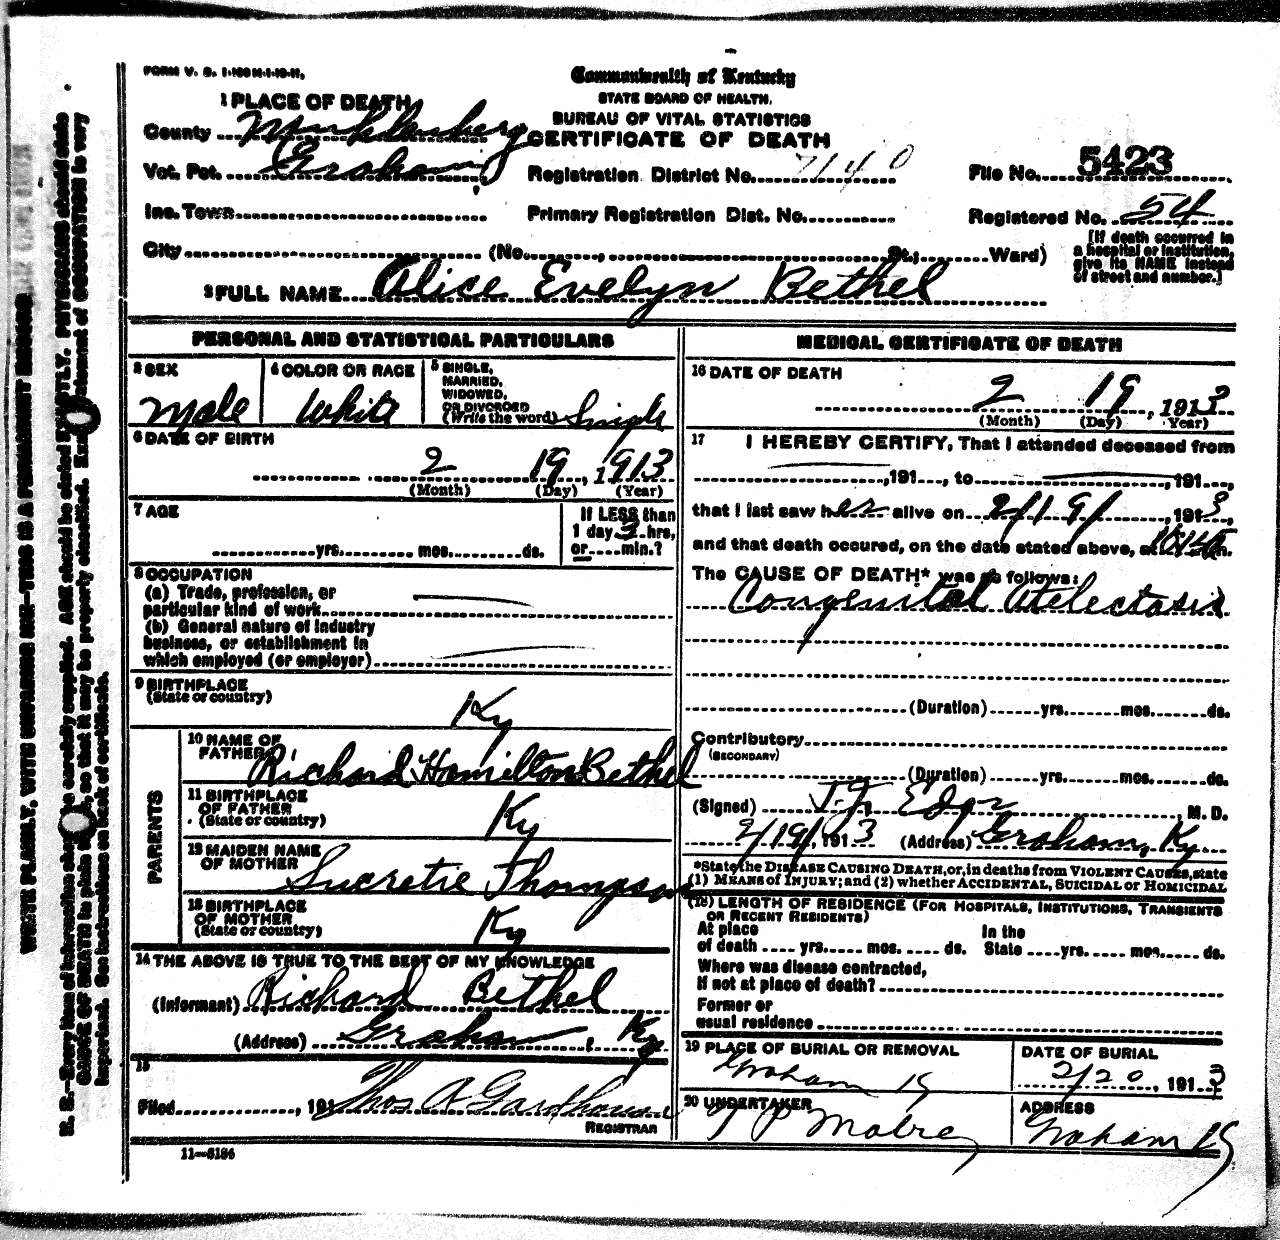 FORM V. S. 1-100 M-1-10-11.
Commonwealth of Kentucky
STATE BOARD OF HEALTH.
BUREAU OF VITAL STATISTICS
CERTIFICATE OF DEATH
1 PLACE OF DEATH
County Muhlenberg
Vot. Pct. Graham
Registration District No. 7140
File No. 5423
Inc. Town
Primary Registration Dist. No.
Registered No. 54
City (No. , St.; Ward)
[If death occurred in a hospital or institution, give its NAME instead of street and number.]
2 FULL NAME Alice Evelyn Bethel
PERSONAL AND STATISTICAL PARTICULARS
3 SEX
Male
4 COLOR OR RACE
White
5 SINGLE, MARRIED, WIDOWED, OR DIVORCED (Write the word) Single
6 DATE OF BIRTH
2 19, 1913
(Month) (Day) (Year)
7 AGE
yrs. mos. ds.
If LESS than
1 day 3 hrs,
or min.?
8 OCCUPATION
(a) Trade, profession, or
particular kind of work
(b) General nature of industry
business, or establishment in
which employed (or employer)
9 BIRTHPLACE
(State or country)
Ky
PARENTS
10 NAME OF FATHER
Richard Hamilton Bethel
11 BIRTHPLACE OF FATHER (State or country)
Ky
12 MAIDEN NAME OF MOTHER
Lucretie Thompson
13 BIRTHPLACE OF MOTHER (State or country)
Ky
14 THE ABOVE IS TRUE TO THE BEST OF MY KNOWLEDGE
(Informant) Richard Bethel
(Address) Graham, Ky
15
Filed , 191 Thos A Gardhouse
REGISTRAR
11—5184
MEDICAL CERTIFICATE OF DEATH
16 DATE OF DEATH
2 19, 1913
(Month) (Day) (Year)
17 I HEREBY CERTIFY, That I attended deceased from
, 191 , to , 191 ,
that I last saw her alive on 2/19/, 1913,
and that death occured, on the date stated above, at m.
The CAUSE OF DEATH* was as follows:
Congenital Atelectasis
(Duration) yrs. mos. ds.
Contributory
(SECONDARY)
(Duration) yrs. mos. ds.
(Signed) J.J. Edgr M. D.
2/19/, 1913 (Address) Graham, Ky.
*State the DISEASE CAUSING DEATH, or, in deaths from VIOLENT CAUSES, state
(1) MEANS of INJURY; and (2) whether ACCIDENTAL, SUICIDAL or HOMICIDAL
(18) LENGTH OF RESIDENCE (FOR HOSPITALS, INSTITUTIONS, TRANSIENTS
OR RECENT RESIDENTS)
At place of death yrs. mos. ds. In the State yrs. mos. ds.
Where was disease contracted,
If not at place of death?
Former or
usual residence
19 PLACE OF BURIAL OR REMOVAL
Graham Ky
DATE OF BURIAL
2/20, 1913
20 UNDERTAKER
T P Mobrey
ADDRESS
Graham Ky
WRITE PLAINLY, WITH UNFADING INK—THIS IS A PERMANENT RECORD
N. B.—Every item of information should be carefully supplied. AGE should be stated EXACTLY. PHYSICIANS should state
CAUSE OF DEATH in plain terms, so that it may be properly classified. Exact statement of OCCUPATION is very
important. See instructions on back of certificate.